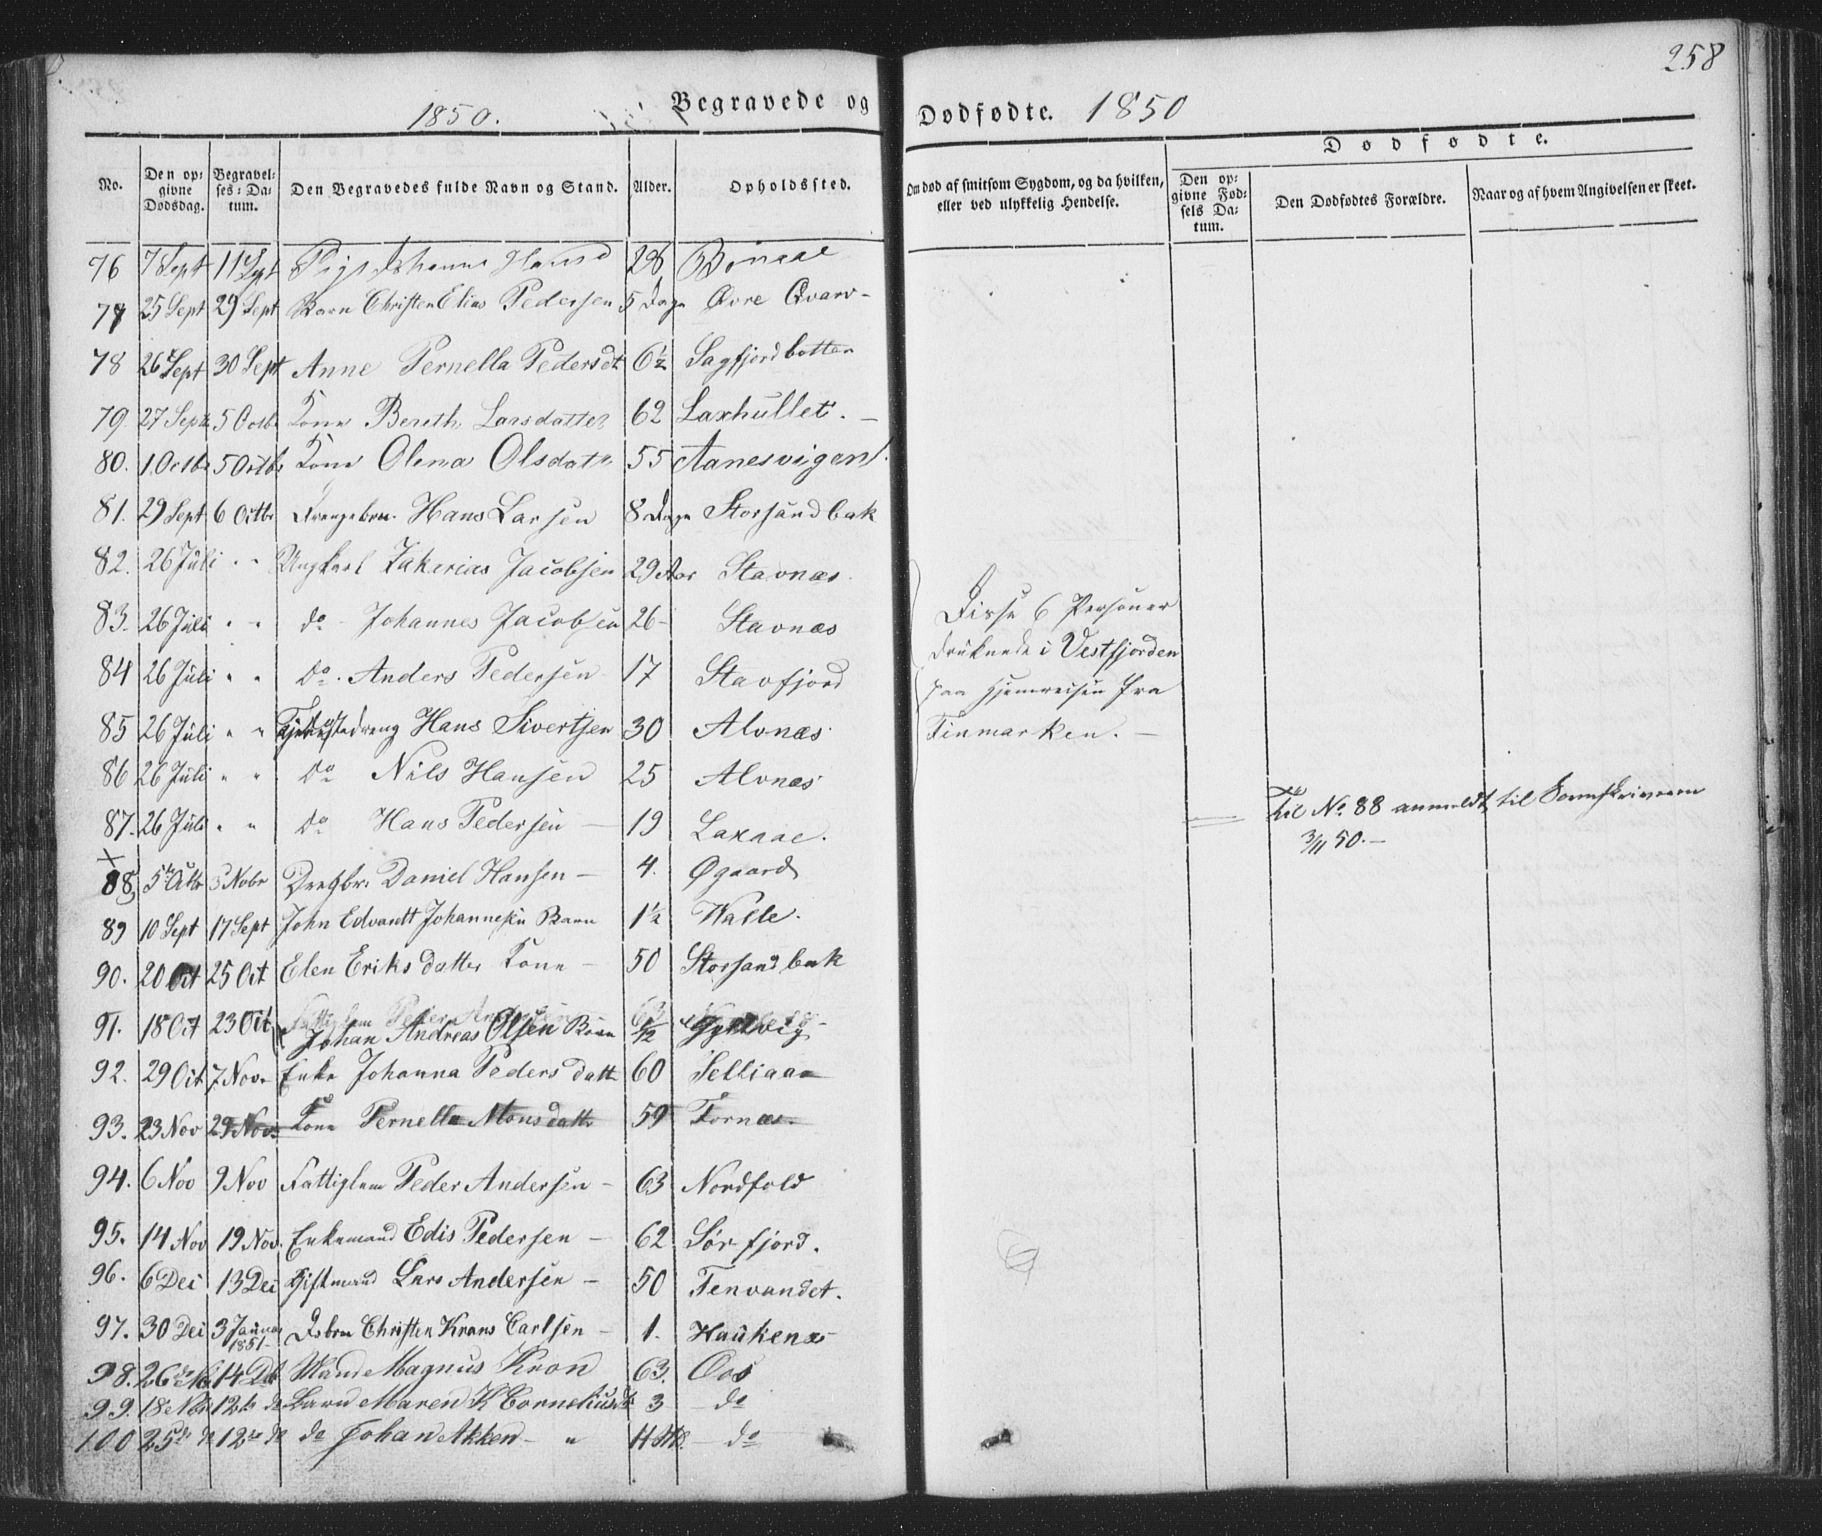 258
1850.
Begravede og Dødfødte. 1850
Dødfødte.
No.
Den opgivne Dødsdag.
Begravelses-Datum.
Den Begravedes fulde Navn og Stand.
Alder.
Opholdssted.
Om død af smitsom Sygdom, og da hvilken, eller ved ulykkelig Hendelse.
Den opgivne Fødsels Datum.
Den Dødfødtes Forældre.
Naar og af hvem Angivelsen er skeet.
76 7 Sept 11 Sept Pige 28
77 25 Sept 29 Sept Barn Christen Elias Pedersen 5 Dage Øvre Qvarv-
78 26 Sept 30 Sept Anne Pernella Pedersdt 6½ Sagfjordbotten
79 27 Sept 5 Octb Kone Bereth Larsdatter 62 Laxhullet. —
80. 1. Octb 5 Octbr Kone Olena Olsdatr 55 Aanesvigen
81. 29 Sept 6 Octbr Drengebrn. Hans Larsen 8 Dage Storsandbak
82. 26 Juli " " Ungkarl Zakerias Jacobsen 29 Aar Stavnæs
83. 26 Juli " " do - Johannes Jacobsen 26 - Stavnæs
84 26 Juli " " do. Anders Pedersen 17 Stavfjord
85 26 Juli " " Tjenestedreng Hans Sivertsen 30 Alvnæs
86 26 Juli " " do Nils Hansen 25 Alvnæs
87. 26 Juli " " do Hans Pedersen — 19 Laxaae.
Disse 6 Personer
druknede i Vestfjorden
paa Hjemreisen fra
Finmarken. —
Til No. 88 anmeldt til Sorenskriveren
3/11 50. —
88 5 Octb 3 Nobr Drengbr. Daniel Hansen — 4. Øgaard
89 10 Sept 17 Sept John Edvardt Johannesen Barn 1½ Walle.
90. 20 Oct 25 Oct Elen Eriksdatter Kone — 50 Storsandbak
91. 18 Oct 23 Oct Johan Andreas Olsen Barn
92. 29 Oct 7 Nov. Enke Johanna Pedersdatt 60 Selliaae
93. 23 Nov 29 Nov. Kone Pernella Monsdattr 59 Fornæs
94. 6 Nov 9 Nov Fattiglem Peder Andersen — 63 Nordfold
95. 14 Nov 19 Nov. Enkemand Edis Pedersen — 62 Sørfjord.
96. 6 Dec 13 Dec Giftmand Lars Andersen — 50 Tenvandet.
97. 30 Dec 3 Januar 1851 Christen Krans Carlsen — 1. Haukenæs
98. 26 14 Mand Magnus Kron 63. Oos
99. 18 Nov 12 do Barn Maren K Corneliusdt 3 — do
100 25 do 12 do do Johan Akken — " — do